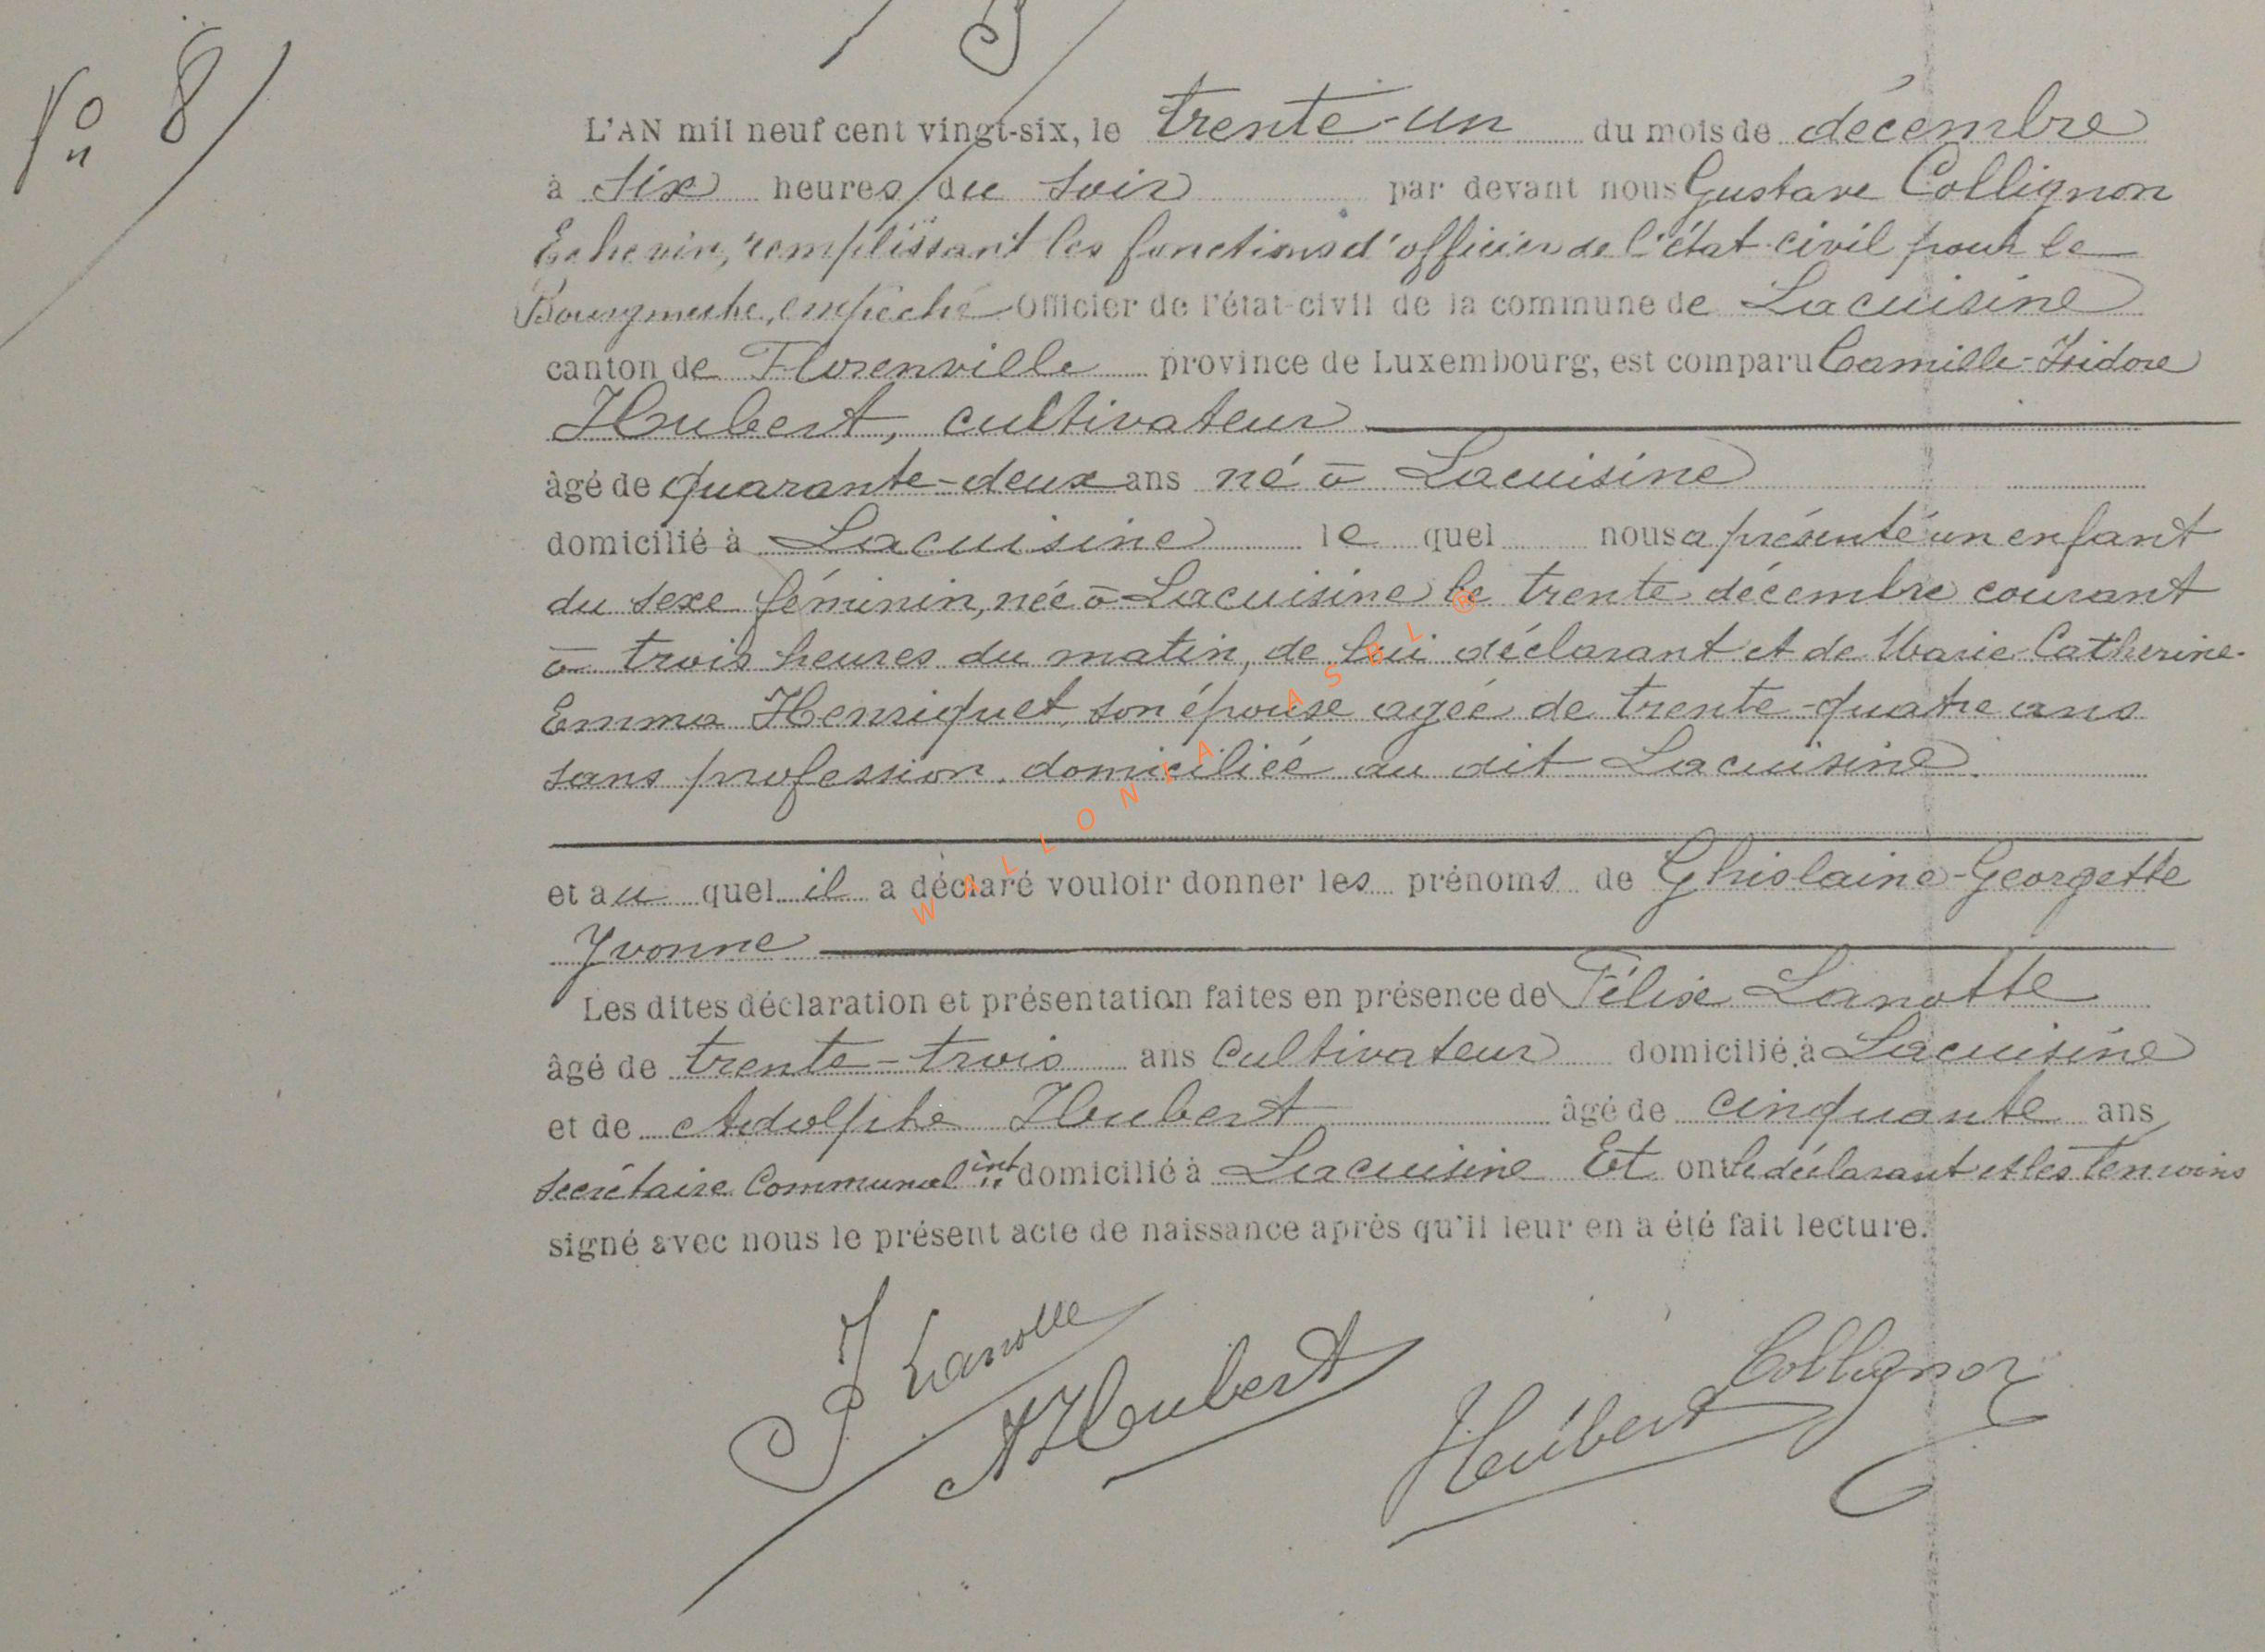 No 8
L'AN mil neuf cent vingt-six, le trente-un du mois de décembre
à six heures du soir par devant nous Gustave Collignon
Echevin, remplissant les fonctions d'officier de l'état-civil pour le
Bourgmestre, empêché Officier de l'état-civil de la commune de Lacuisine
canton de Florenville province de Luxembourg, est comparu Camille-Isidore
Hubert, cultivateur
âgé de quarante-deux ans né à Lacuisine
domicilié à Lacuisine le quel nous a présenté un enfant
du sexe féminin, née à Lacuisine le trente décembre courant
à trois heures du matin, de lui déclarant et de Marie-Catherine-
Emma Henriquet, son épouse agée de trente-quatre ans
sans profession, domiciliée au dit Lacuisine.
et au quel il a déclaré vouloir donner les prénoms de Ghislaine-Georgette
Yvonne
Les dites déclaration et présentation faites en présence de Félix Lanotte
âgé de trente-trois ans cultivateur domicilié à Lacuisine
et de Adolphe Hubert âgé de cinquante ans
secrétaire Communal int domicilié à Lacuisine Et ont le déclarant et les temoins
signé avec nous le présent acte de naissance après qu'il leur en a été fait lecture.
F Lanotte
A Hubert
Hubert
Collignon
WALLONIA ASBL ®